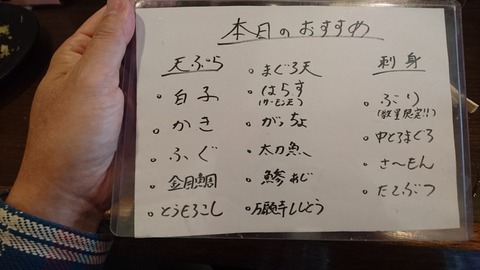 本日のおすすめ
天ぷら
白子
かき
ふぐ
金目鯛
とうもろこし
まぐろ天
はらす
(サーモン天)
がっちょ
太刀魚
鯵あじ
万願寺ししとう
刺身
ぶり
(数量限定!!)
中とろまぐろ
さーもん
たこぶつ